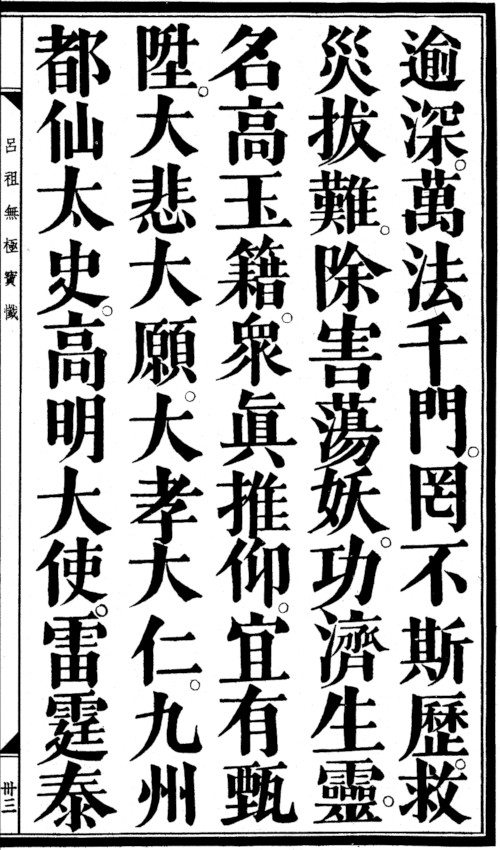 逾深。萬法千門。罔不斯歷。救
災拔難。除害蕩妖。功濟生靈。
名高玉籍。眾眞推仰。宜有甄
陞。大悲大願。大孝大仁。九州
都仙太史。高明大使。雷霆泰
呂祖無極寶懺
卅三